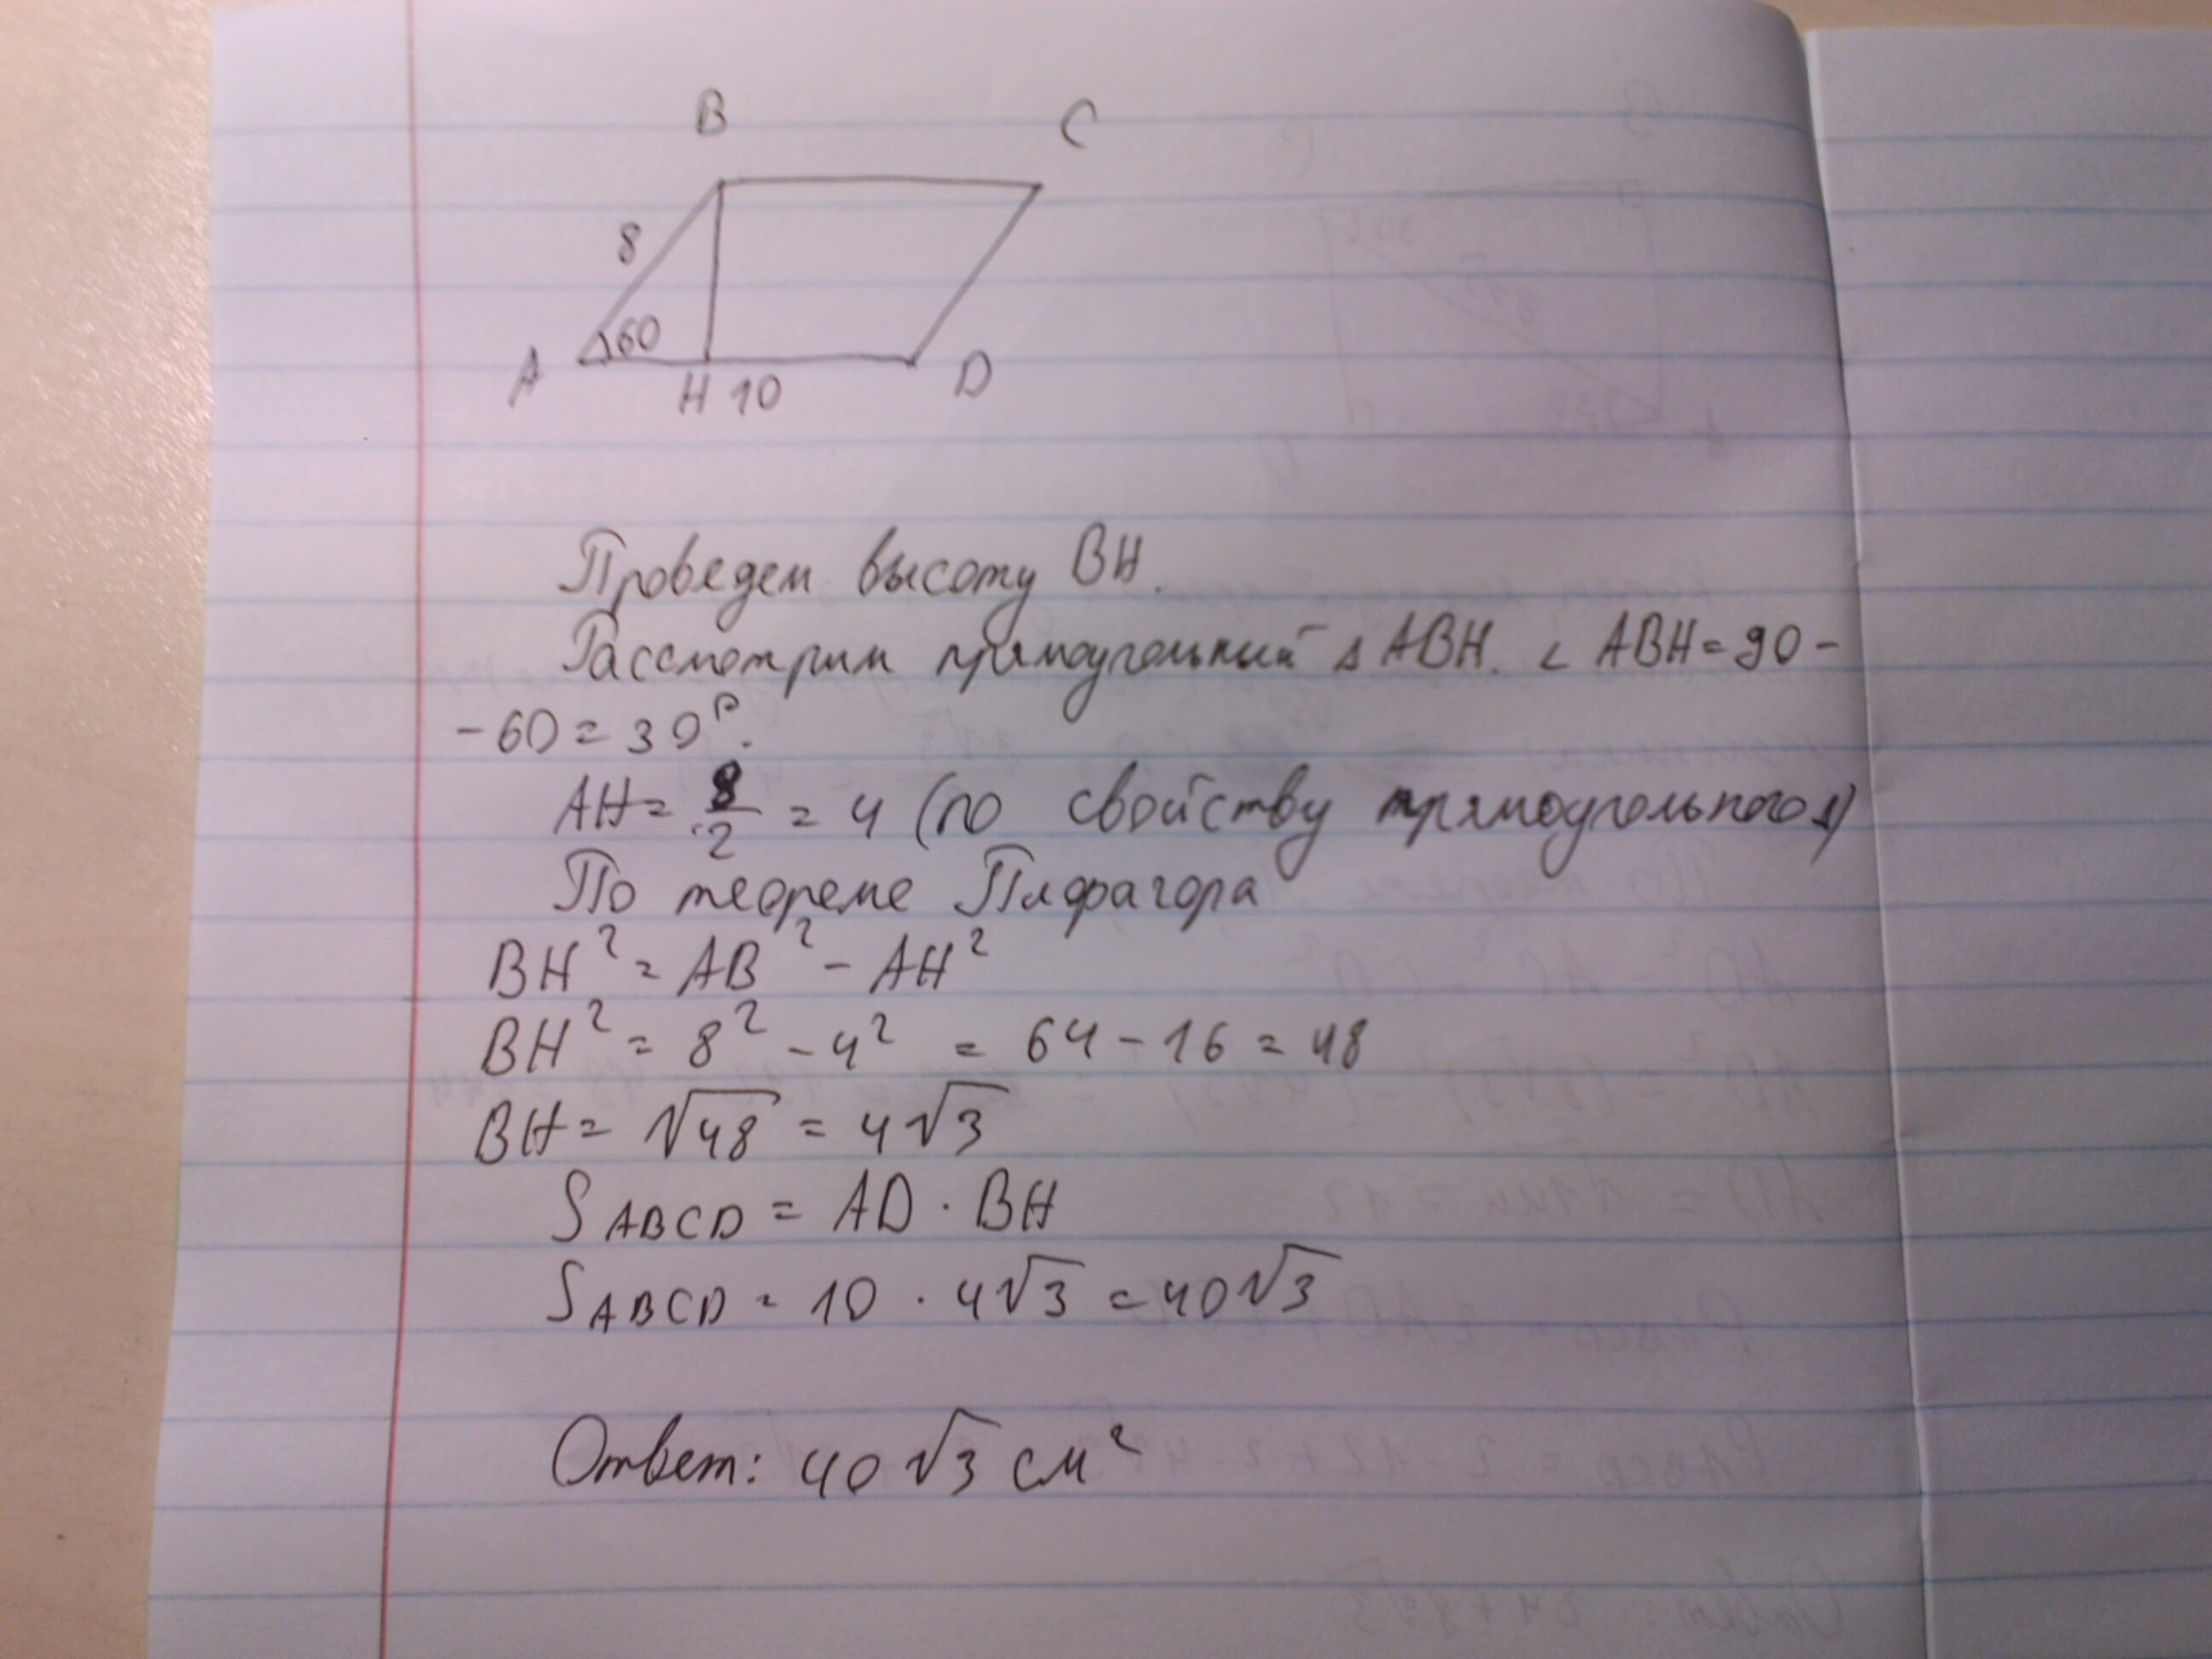 B
C
8
60
A
H 10
D
Проведем высоту BH.
Рассмотрим прямоугольный Δ ABH. ∠ ABH = 90 -
- 60 = 30°.
AH = 8/2 = 4 (по свойству прямоугольного Δ)
По теореме Пифагора
BH² = AB² - AH²
BH² = 8² - 4² = 64 - 16 = 48
BH = √48 = 4√3
S ABCD = AD · BH
S ABCD = 10 · 4√3 = 40√3
Ответ: 40√3 см²